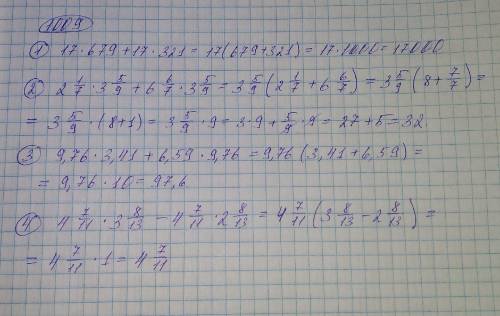 1009
1) 17·679+17·321=17(679+321)=17·1000=17000
2) 2 1/7 · 3 5/9 + 6 6/7 · 3 5/9 = 3 5/9 (2 1/7 + 6 6/7) = 3 5/9 (8 + 7/7) =
= 3 5/9 · (8+1) = 3 5/9 · 9 = 3·9 + 5/9 · 9 = 27+5 = 32.
3) 9,76·3,41+6,59·9,76=9,76(3,41+6,59)=
= 9,76·10=97,6
4) 4 7/11 · 3 8/13 - 4 7/11 · 2 8/13 = 4 7/11 (3 8/13 - 2 8/13) =
= 4 7/11 · 1 = 4 7/11